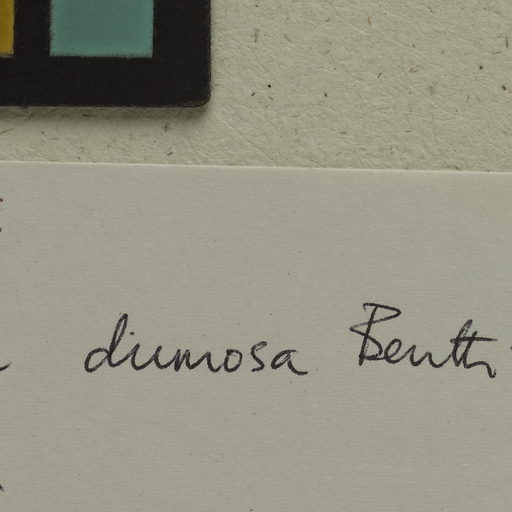 diumosa Benth